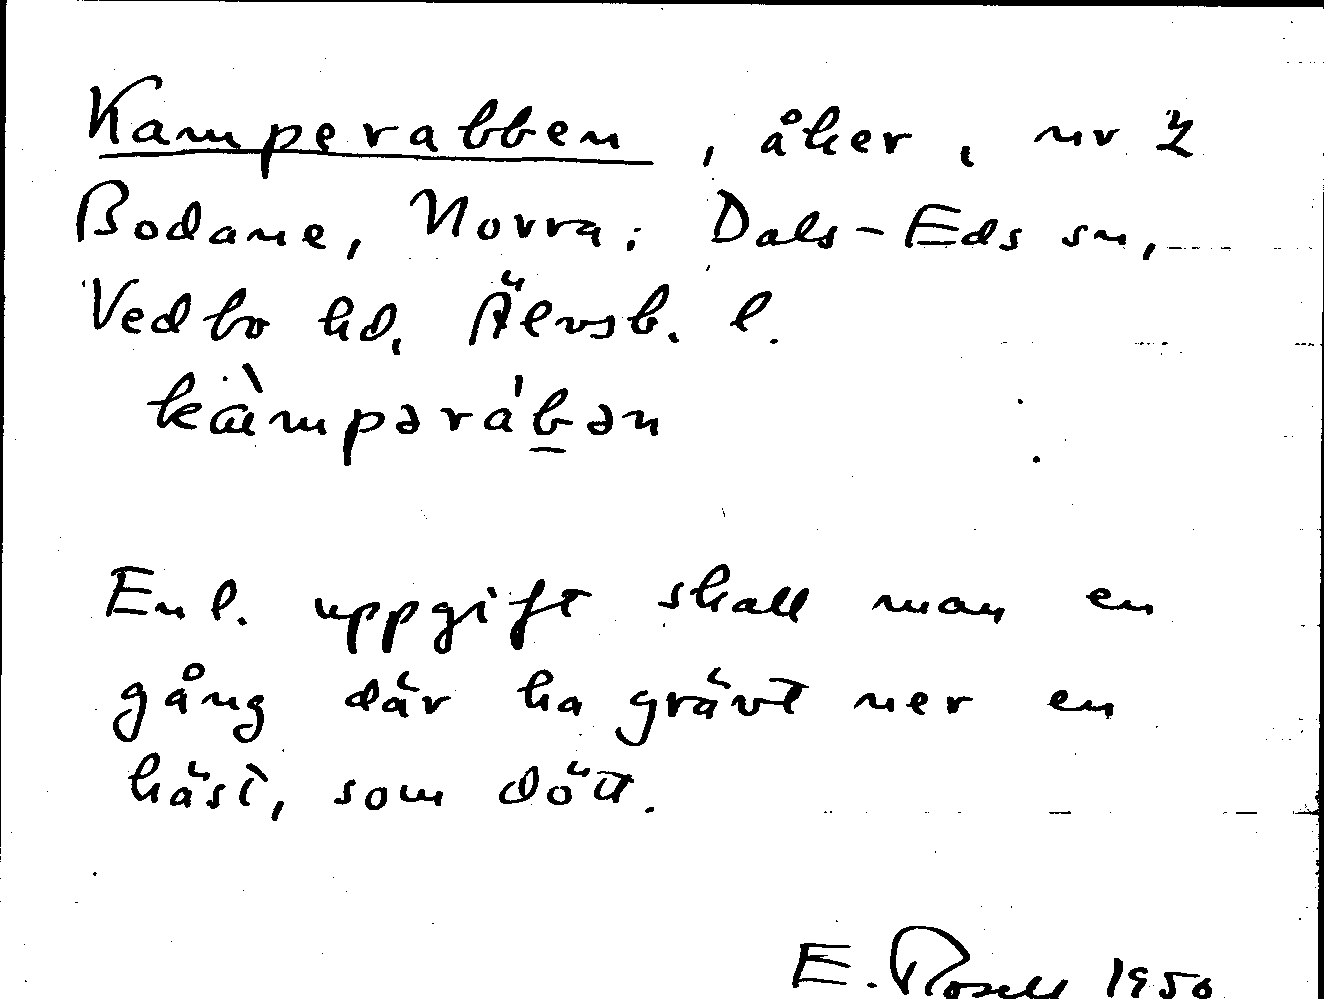 Kamperabben, åker, nr 2
Bodane, Norra; Dals-Eds sn,
Vedbo hd, Älvsb. l.
kàmpəráb̲ən
Enl. uppgift skall man en
gång där ha grävt ner en
häst, som dött.
E. Rosell 1950